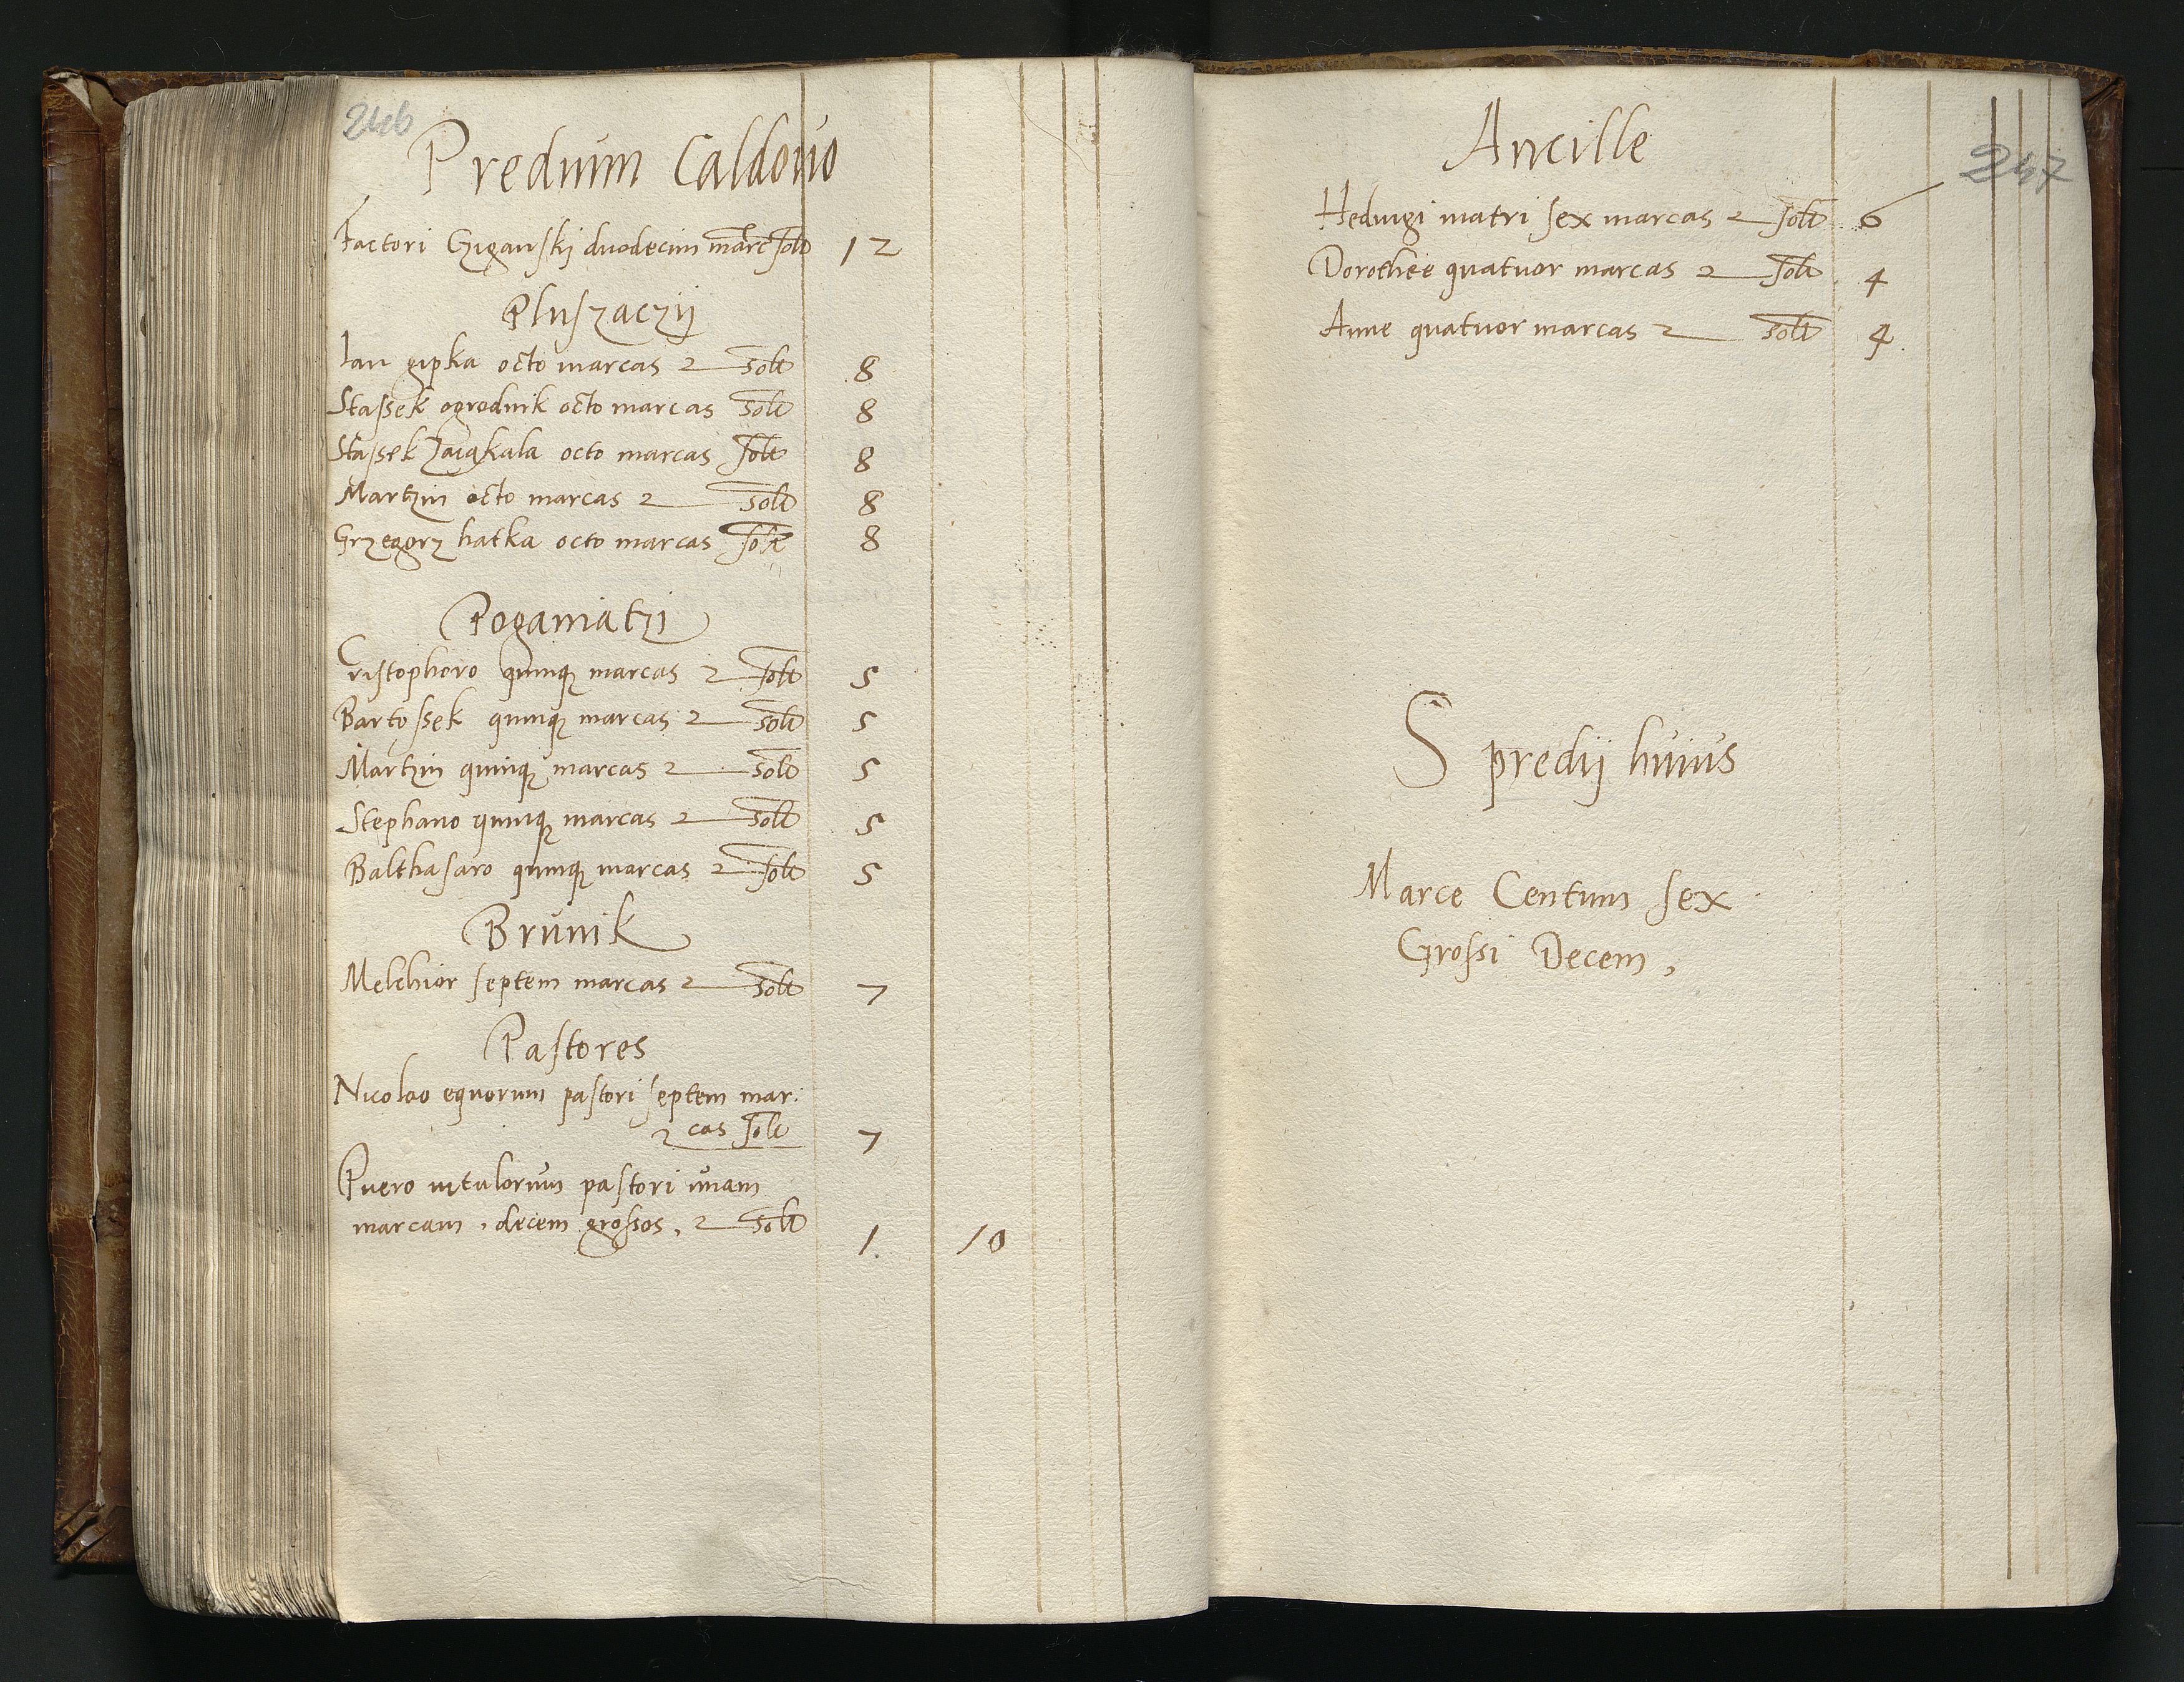 246
Predium Caldovo
Factori Gziganskij duodecim marc solt 12
Pluszaczij
Ian gipka octo marcas solt 8
Stassek ogrodnik octo marcas solt 8
Stassek octo marcas solt 8
Martzin octo marcas solt 8
Grzegorz hatka octo marcas solt 8
Poganiatzi
Cristophoro quinq marcas solt 5
Bartossek quinq marcas solt 5
Martzin quinq marcas solt 5
Stephano quinq marcas solt 5
Balthasaro quinq marcas solt 5
Brunik
Melchior septem marcas solt 7
Pastores
Nicolao equorum pastori septem mar:
cas solt 7
Puero vitulorum pastori unam
marcam, decem grossos, solt 1. 10
247
Ancille
Hedvigi matri sex marcas solt 6
Dorothee quatuor marcas solt 4
Anne quatuor marcas solt 4.
S predij huius
Marce Centum sex
Grossi Decem,